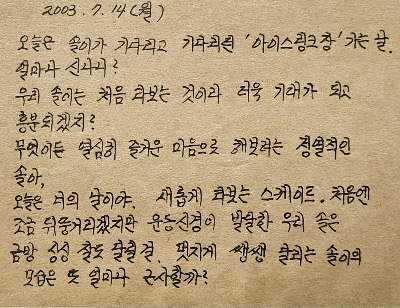 2003. 7. 14 (월)
오늘은 솔이가 기다리고 기다리던 '아이스링크장' 가는 날.
얼마나 신나니?
우리 솔이는 처음 타보는 것이라 더욱 기대가 되고
흥분되겠지?
무엇이든 열심히 즐거운 마음으로 해보려는 정열적인
솔아,
오늘은 너의 날이야. 새롭게 타보는 스케이트. 처음엔
조금 뒤뚱거리겠지만 운동신경이 발달한 우리 솔은
금방 씽씽 잘도 탈걸. 멋지게 쌩쌩 달리는 솔이의
모습은 또 얼마나 근사할까?